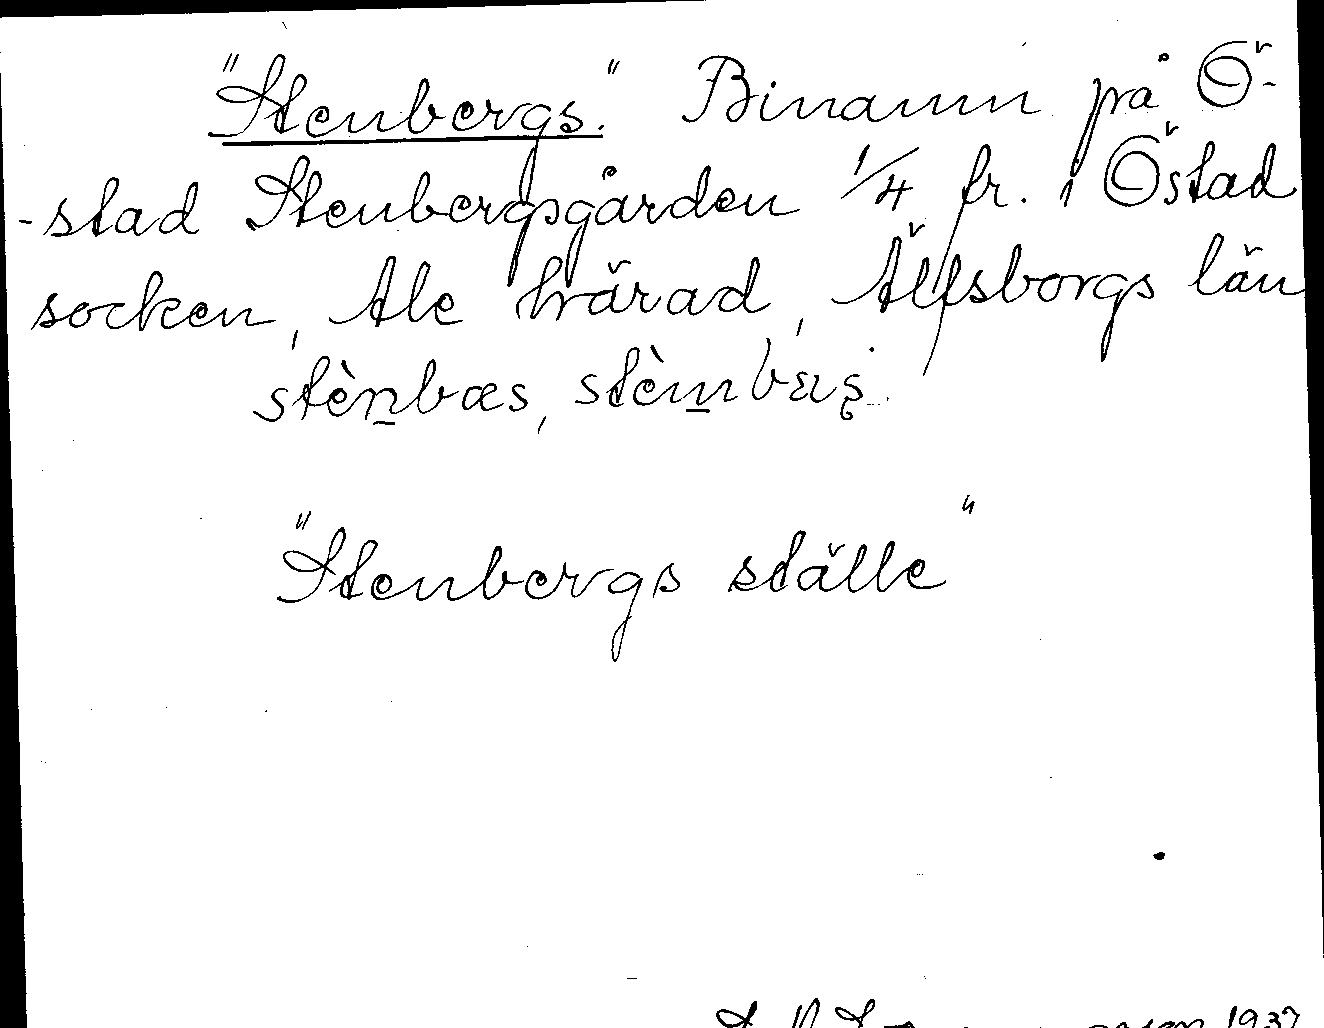 "Stenbergs." Binamn på Ö-
-stad Stenbergsgården 1/4 fr. i Östad
socken, Ale härad, Älfsborgs län
stènbæs,
"Stenbergs ställe"
1937